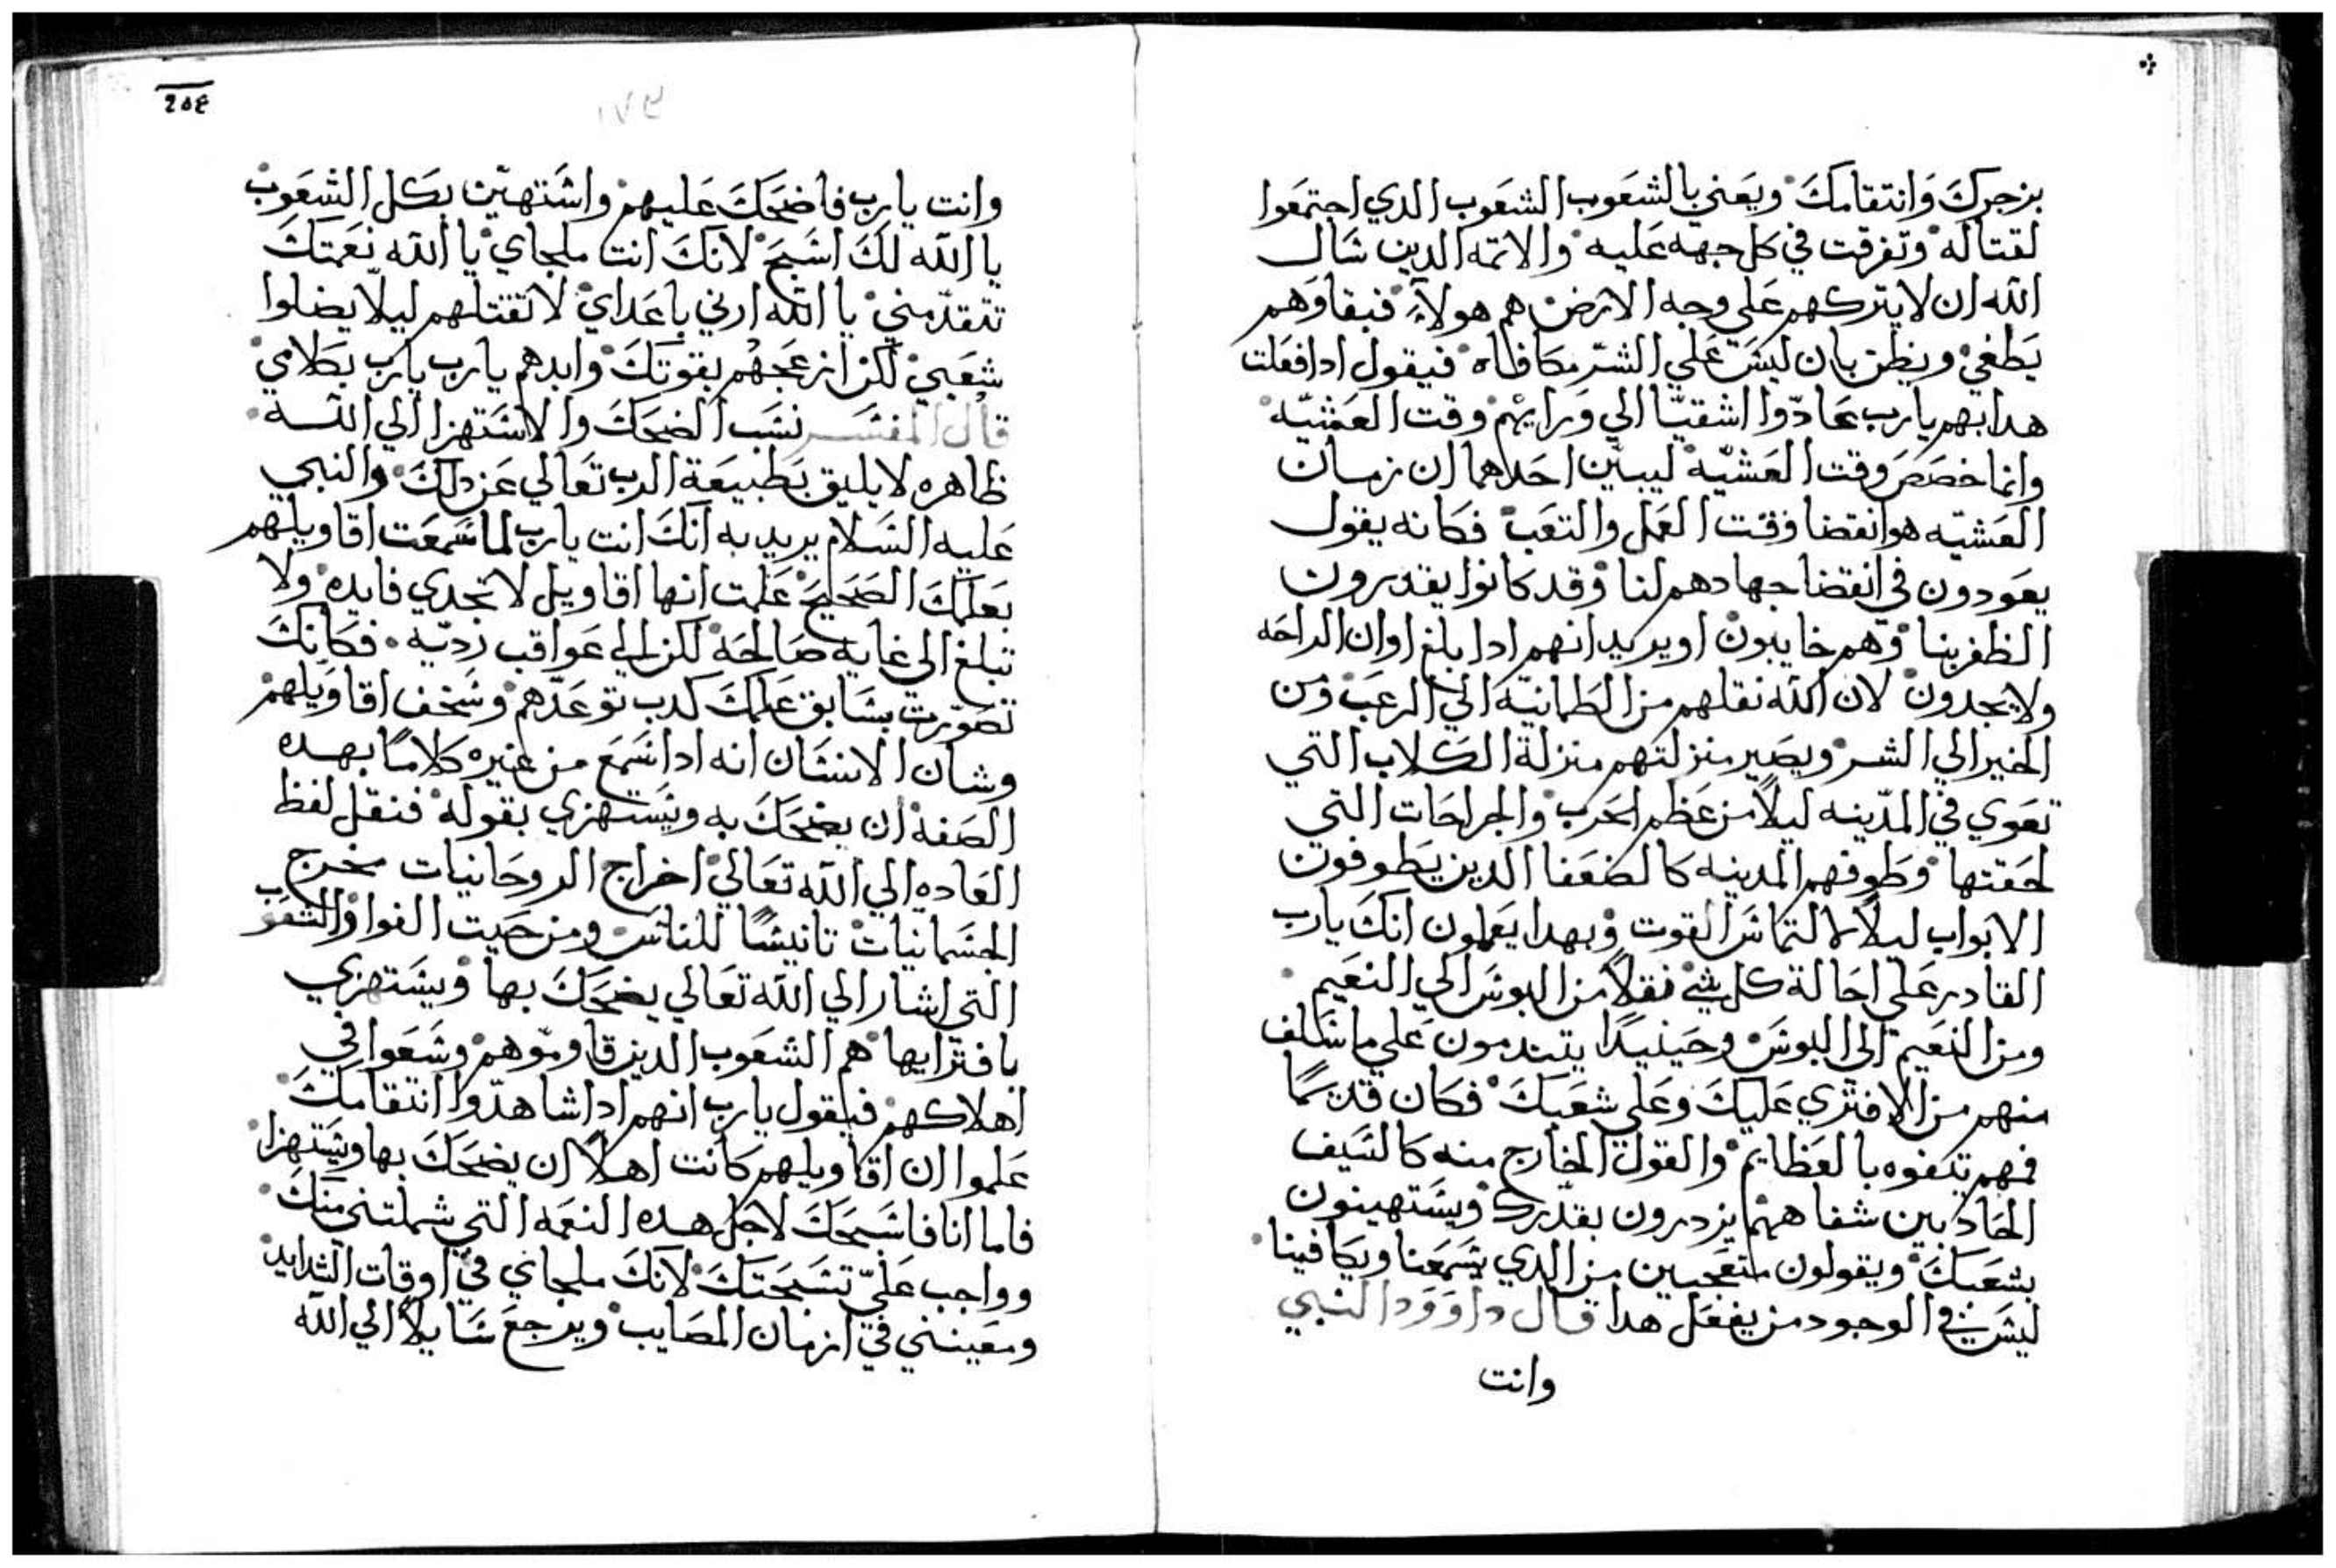 بزجرك وانتقامك ويعني بالشعوب الشعوب الدي اجتمعوا
لقتاله وتفرقت في كل جهه عليه والاتمه الدين سال
الله ان لا يتركهم علي وجه الارض هم هولاء فبقاوهم
يطغي ويظن بان ليس علي الشر مكافاه فيقول ادا فعلت
هدا بهم يارب عادوا اشقيا الي ورايهم وقت العشيه
وانما خصص وقت العشيه ليبين احداهما ان زمان
العشيه هو انقضا وقت العمل والتعب فكانه يقول
يعودون في انقضا جهادهم لنا وقد كانوا يقدرون
الظفر بنا وهم خايبون او يريد انهم ادا بلغ اوان الراحه
ولا يجدون لان الله نقلهم من الطمانيه الي الرعب ومن
الخير الي الشر ويصير منزلتهم منزلة الكلاب التي
تعوي في المدينه ليلاً من عظم الحرب والجراحات التي
لحقتها وطوفهم المدينه كالضعفا الدين يطوفون
الابواب ليلاً لالتماس القوت وبهدا يعلمون انك يارب
القادر علي احالة كل شي نقلاً من البوس الي النعيم
ومن النعيم الى البوس وحينيدا يتندمون علي ما سلف
منهم من الافتري عليك وعلي شعبك فكان قديمًا
فمهم تتفوه بالعظايم والقول الخارج منه كالسيف
الحاد بين شفاههم يزدرون بقدرك ويستهينون
بشعبك ويقولون متعجبين من الدي يسمعنا ويكافينا
ليس في الوجود من يفعل هدا قال داوود النبي
وانت
٢٥٤
وانت يارب فاضحك عليهم واستهين بكل الشعوب
يا الله لك اسبح لانك انت ملجاي يا الله نعمتك
تتقدمني يا الله ارني باعداي لا تقتلهم ليلا يضلوا
شعبي لكن ازعجهم بقوتك وابدهم يارب يارب بكلامي
قال المفسر نسب الضحك والاستهزا الي الله
ظاهره لا يليق بطبيعة الرب تعالي عن دلك والنبي
عليه السلام يريد به انك انت يارب لما سمعت اقاويلهم
بعلمك الصحيح علمت انها اقاويل لا تجدي فايده ولا
تبلغ الى غايه صالحه لكن الي عواقب رديه فكانك
تصورت بسابق علمك كدب توعدهم وسخف اقاويلهم
وشان الانسان انه ادا سمع من غيره كلامًا بهده
الصفه ان يضحك به ويستهزي بقوله فنقل لفظ
العاده الي الله تعالي اخراج الروحانيات مخرج
الجسمانيات تانيسًا للناس ومن حيت الفوا والشعوب
التي اشار الي الله تعالي يضحك بها ويستهزي
بافترايها هم الشعوب الدين قاوموهم وسعوا في
اهلاكهم فيقول يارب انهم ادا شاهدوا انتقامك
علموا ان اقاويلهم كانت اهلاً ان يضحك بها ويستهزا
فاما انا فاسبحك لاجل هده النعمه التي شملتني منك
وواجب علي تسبحتك لانك ملجاي في اوقات الشدايد
ومعينني في ازمان المصايب ويرجع سايلاً الي الله